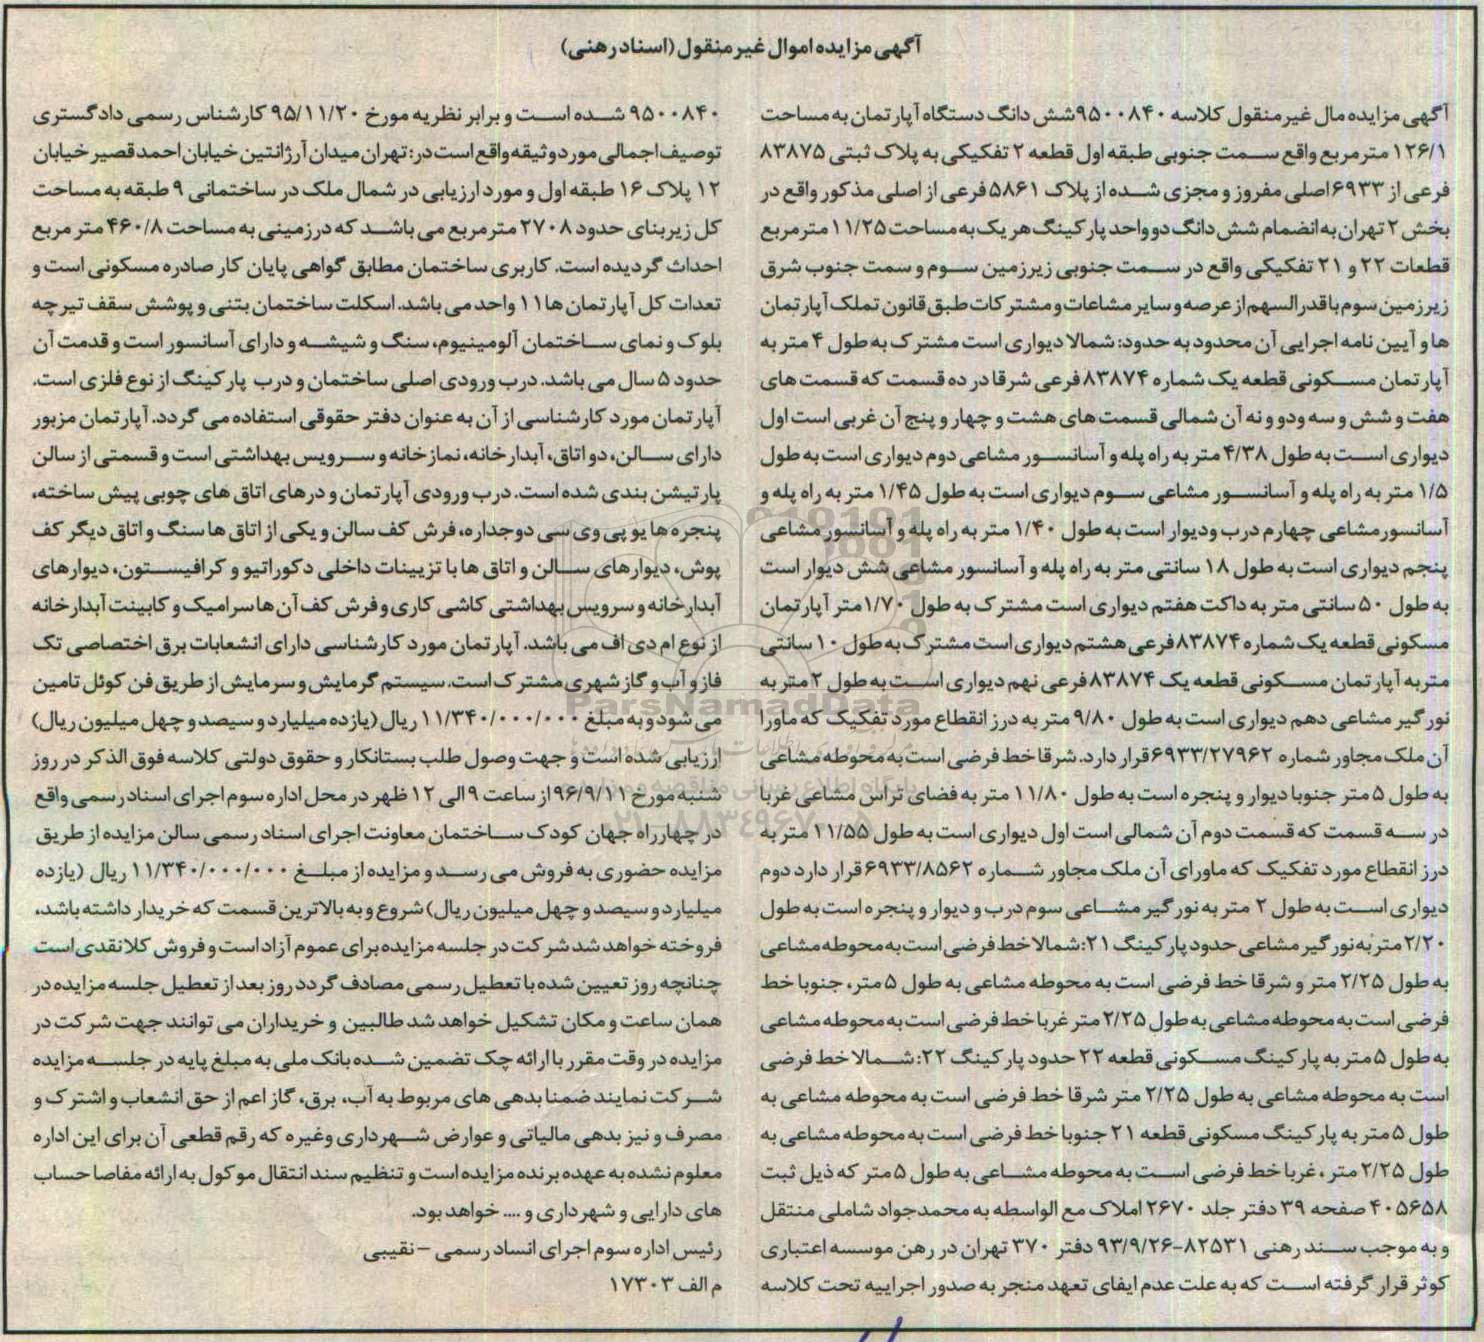 آگهی مزایده اموال غیر منقول (اسناد رهنی)
آگهی مزایده مال غیر منقول کلاسه ۹۵۰۰۸۴۰شش دانگ دستگاه آپارتمان به مساحت
۱۲۶/۱ مترمربع واقع سمت جنوبی طبقه اول قطعه ۲ تفکیکی به پلاک ثبتی ۸۳۸۷۵
فرعی از ۶۹۳۳اصلی مفروز و مجزی شده از پلاک ۵۸۶۱فرعی از اصلی مذکور واقع در
بخش ۲ تهران به انضمام شش دانگ دو واحد پارکینگ هر یک به مساحت ۱۱/۲۵ مترمربع
قطعات ۲۲ و ۲۱ تفکیکی واقع در سمت جنوبی زیرزمین سوم و سمت جنوب شرق
زیرزمین سوم با قدرالسهم از عرصه و سایر مشاعات و مشترکات طبق قانون تملک آپارتمان
ها و آیین نامه اجرایی آن محدود به حدود: شمالا دیواری است مشترک به طول ۴ متر به
آپارتمان مسکونی قطعه یک شماره ۸۳۸۷۴ فرعی شرقا در ده قسمت که قسمت های
هفت و شش و سه ودو و نه آن شمالی قسمت های هشت و چهار و پنج آن غربی است اول
دیواری است به طول ۴/۳۸ متر به راه پله و آسانسور مشاعی دوم دیواری است به طول
۱/۵ متر به راه پله و آسانسور مشاعی سوم دیواری است به طول ۱/۴۵ متر به راه پله و
آسانسور مشاعی چهارم درب ودیوار است به طول ۱/۴۰ متر به راه پله و آسانسور مشاعی
پنجم دیواری است به طول ۱۸ سانتی متر به راه پله و آسانسور مشاعی شش دیوار است
به طول ۵۰ سانتی متر به داکت هفتم دیواری است مشترک به طول ۱/۷۰متر آپارتمان
مسکونی قطعه یک شماره ۸۳۸۷۴فرعی هشتم دیواری است مشترک به طول ۱۰ سانتی
متر به آپارتمان مسکونی قطعه یک ۸۳۸۷۴فرعی نهم دیواری است به طول ۲ متر به
نورگیر مشاعی دهم دیواری است به طول ۹/۸۰ متر به درز انقطاع مورد تفکیک که ماورا
آن ملک مجاور شماره ۶۹۳۳/۲۷۹۶۲قرار دارد. شرقا خط فرضی است به محوطه مشاعی
به طول ۵ متر جنوبا دیوار و پنجره است به طول ۱۱/۸۰ متر به فضای تراس مشاعی غربا
در سه قسمت که قسمت دوم آن شمالی است اول دیواری است به طول ۱۱/۵۵ متر به
درز انقطاع مورد تفکیک که ماورای آن ملک مجاور شماره ۶۹۳۳/۸۵۶۲قرار دارد دوم
دیواری است به طول ۲ متر به نورگیر مشاعی سوم درب و دیوار و پنجره است به طول
۲/۲۰ متر به نورگیر مشاعی حدود پارکینگ ۲۱: شمالا خط فرضی است به محوطه مشاعی
به طول ۲/۲۵ متر و شرقا خط فرضی است به محوطه مشاعی به طول ۵ متر، جنوبا خط
فرضی است به محوطه مشاعی به طول ۲/۲۵ متر غربا خط فرضی است به محوطه مشاعی
به طول ۵ متر به پارکینگ مسکونی قطعه ۲۲ حدود پارکینگ ۲۲: شمالا خط فرضی
است به محوطه مشاعی به طول ۲/۲۵ متر شرقا خط فرضی است به محوطه مشاعی به
طول ۵ متر به پارکینگ مسکونی قطعه ۲۱ جنوبا خط فرضی است به محوطه مشاعی به
طول ۲/۲۵ متر، غربا خط فرضی است به محوطه مشاعی به طول ۵ متر که ذیل ثبت
۴۰۵۶۵۸ صفحه ۳۹ دفتر جلد ۲۶۷۰ املاک مع الواسطه به محمدجواد شاملی منتقل
و به موجب سند رهنی ۸۲۵۳۱-۹۳/۹/۲۶ دفتر ۳۷۰ تهران در رهن موسسه اعتباری
کوثر قرار گرفته است که به علت عدم ایفای تعهد منجر به صدور اجراییه تحت کلاسه
۹۵۰۰۸۴۰ شده است و برابر نظریه مورخ ۹۵/۱۱/۲۰ کارشناس رسمی دادگستری
توصیف اجمالی مورد وثیقه واقع است در: تهران میدان آرژانتین خیابان احمد قصیر خیابان
۱۲ پلاک ۱۶ طبقه اول و مورد ارزیابی در شمال ملک در ساختمانی ۹ طبقه به مساحت
کل زیربنای حدود ۲۷۰۸ مترمربع می باشد که در زمینی به مساحت ۴۶۰/۸ متر مربع
احداث گردیده است. کاربری ساختمان مطابق گواهی پایان کار صادره مسکونی است و
تعدات کل آپارتمان ها ۱۱ واحد می باشد. اسکلت ساختمان بتنی و پوشش سقف تیرچه
بلوک و نمای ساختمان آلومینیوم، سنگ و شیشه و دارای آسانسور است و قدمت آن
حدود ۵ سال می باشد. درب ورودی اصلی ساختمان و درب پارکینگ از نوع فلزی است.
آپارتمان مورد کارشناسی از آن به عنوان دفتر حقوقی استفاده می گردد. آپارتمان مزبور
دارای سالن، دو اتاق، آبدارخانه، نمازخانه و سرویس بهداشتی است و قسمتی از سالن
پارتیشن بندی شده است. درب ورودی آپارتمان و درهای اتاق های چوبی پیش ساخته،
پنجره ها یو پی وی سی دوجداره، فرش کف سالن و یکی از اتاق ها سنگ و اتاق دیگر کف
پوش، دیوارهای سالن و اتاق ها با تزیینات داخلی دکوراتیو و کرافیستون، دیوارهای
آبدارخانه و سرویس بهداشتی کاشی کاری و فرش کف آن ها سرامیک و کابینت آبدارخانه
از نوع ام دی اف می باشد. آپارتمان مورد کارشناسی دارای انشعابات برق اختصاصی تک
فاز و آب و گاز شهری مشترک است. سیستم گرمایش و سرمایش از طریق فن کوئل تامین
می شود و به مبلغ ۱۱/۳۴۰/۰۰۰/۰۰۰ ریال (یازده میلیارد و سیصد و چهل میلیون ریال)
ارزیابی شده است و جهت وصول طلب بستانکار و حقوق دولتی کلاسه فوق الذکر در روز
شنبه مورخ ۹۶/۹/۱۱ از ساعت ۹ الی ۱۲ ظهر در محل اداره سوم اجرای اسناد رسمی واقع
در چهارراه جهان کودک ساختمان معاونت اجرای اسناد رسمی سالن مزایده از طریق
مزایده حضوری به فروش می رسد و مزایده از مبلغ ۱۱/۳۴۰/۰۰۰/۰۰۰ ریال (یازده
میلیارد و سیصد و چهل میلیون ریال) شروع و به بالاترین قسمت که خریدار داشته باشد،
فروخته خواهد شد شرکت در جلسه مزایده برای عموم آزاد است و فروش کلا نقدی است
چنانچه روز تعیین شده با تعطیل رسمی مصادف گردد روز بعد از تعطیل جلسه مزایده در
همان ساعت و مکان تشکیل خواهد شد طالبین و خریداران می توانند جهت شرکت در
مزایده در وقت مقرر با ارائه چک تضمین شده بانک ملی به مبلغ پایه در جلسه مزایده
شرکت نمایند ضمنا بدهی های مربوط به آب، برق، گاز اعم از حق انشعاب و اشتراک و
مصرف و نیز بدهی مالیاتی و عوارض شهرداری وغیره که رقم قطعی آن برای این اداره
معلوم نشده به عهده برنده مزایده است و تنظیم سند انتقال موکول به ارائه مفاصا حساب
های دارایی و شهرداری و .... خواهد بود.
رئیس اداره سوم اجرای انساد رسمی – نقیبی
م الف ۱۷۳۰۳
ParsNamadData